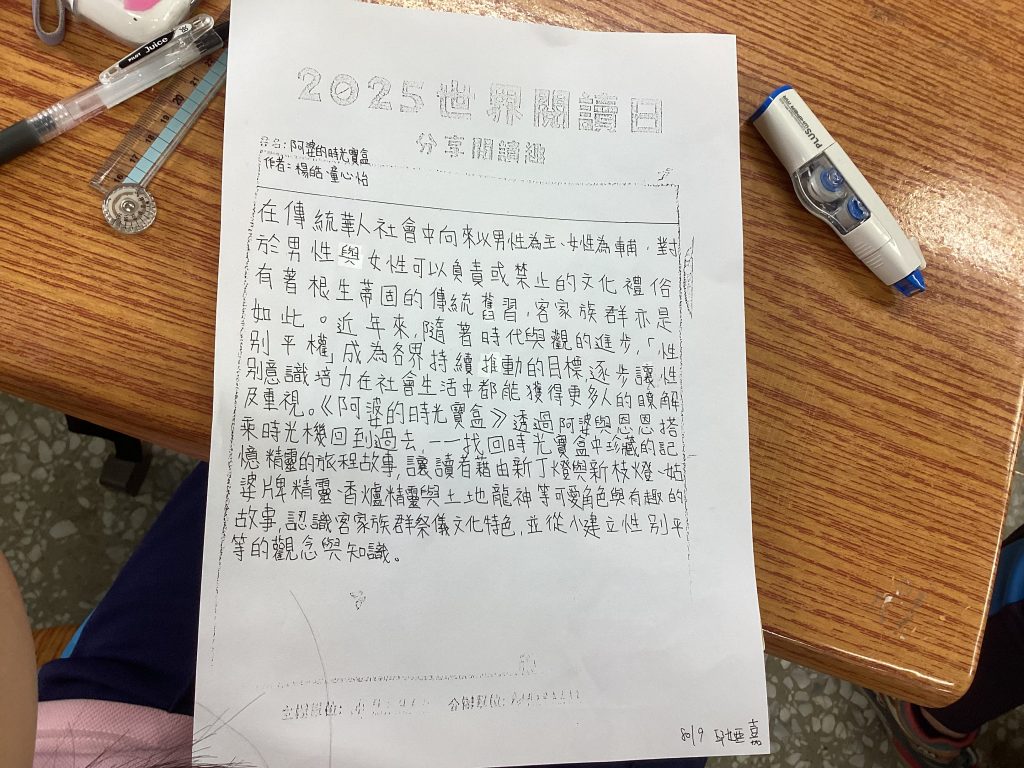 2025世界閱讀日
分享閱讀趣
書名:阿婆的時光寶盒
作者:楊皓、童心怡
在傳統華人社會中向來以男性為主、女性為輔,對
於男性與女性可以負責或禁止的文化禮俗
有著根生蒂固的傳統舊習,客家族群亦是
如此。近年來,隨著時代與觀的進步,「性
別平權」成為各界持續推動的目標,逐步讓性
別意識培力在社會生活中都能獲得更多人的瞭解
及重視。《阿婆的時光寶盒》透過阿婆與恩恩搭
乘時光機回到過去,一一找回時光寶盒中珍藏的記
憶精靈的旅程故事,讓讀者藉由新丁燈與新枝燈、姑
婆牌精靈、香爐精靈與土地龍神等可愛角色與有趣的
故事,認識客家族群祭儀文化特色,並從小建立性別平
等的觀念與知識。
809
PILOT Juice
PLUS